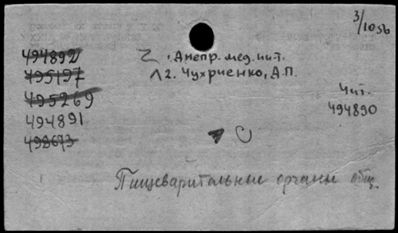 3/1056
494892
495197
495269
494891
498673
2. Днепр. мед. инт.
л2. Чухриенко, Д.П.
Чит.
494890
Пищеварительные органы общ.